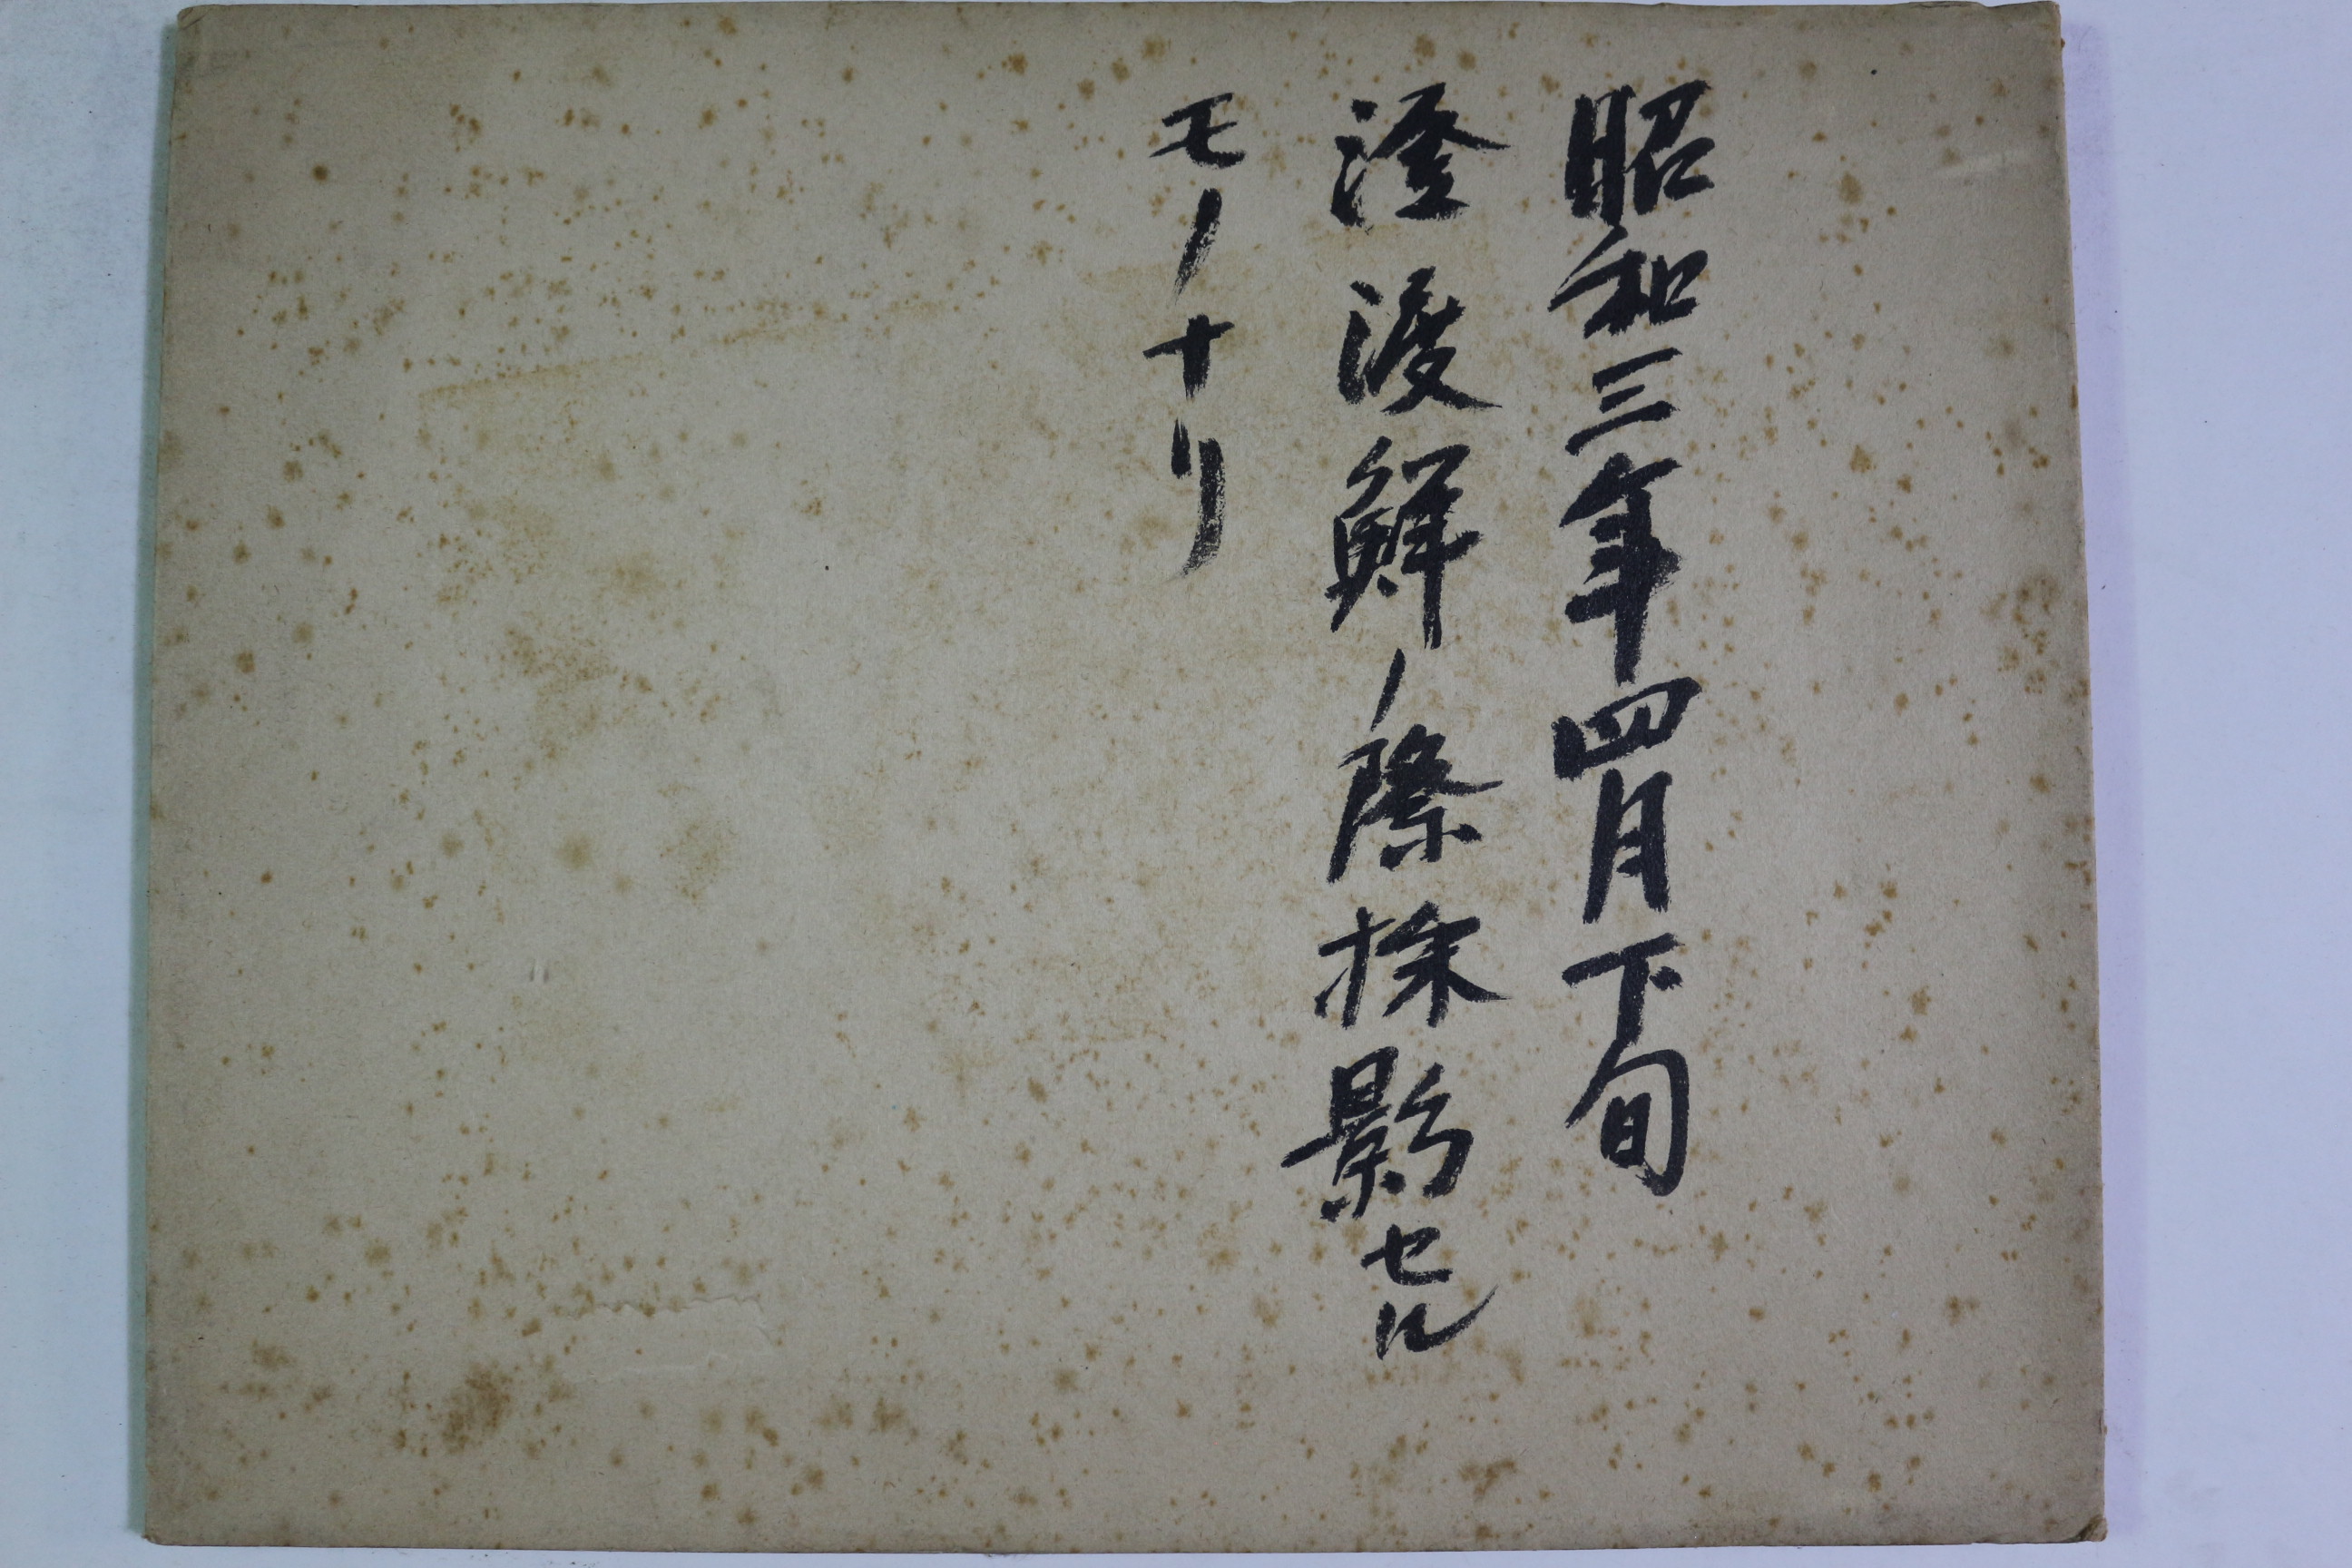 昭和三年四月下旬
澄渡鮮ノ際採影セル
モノナリ